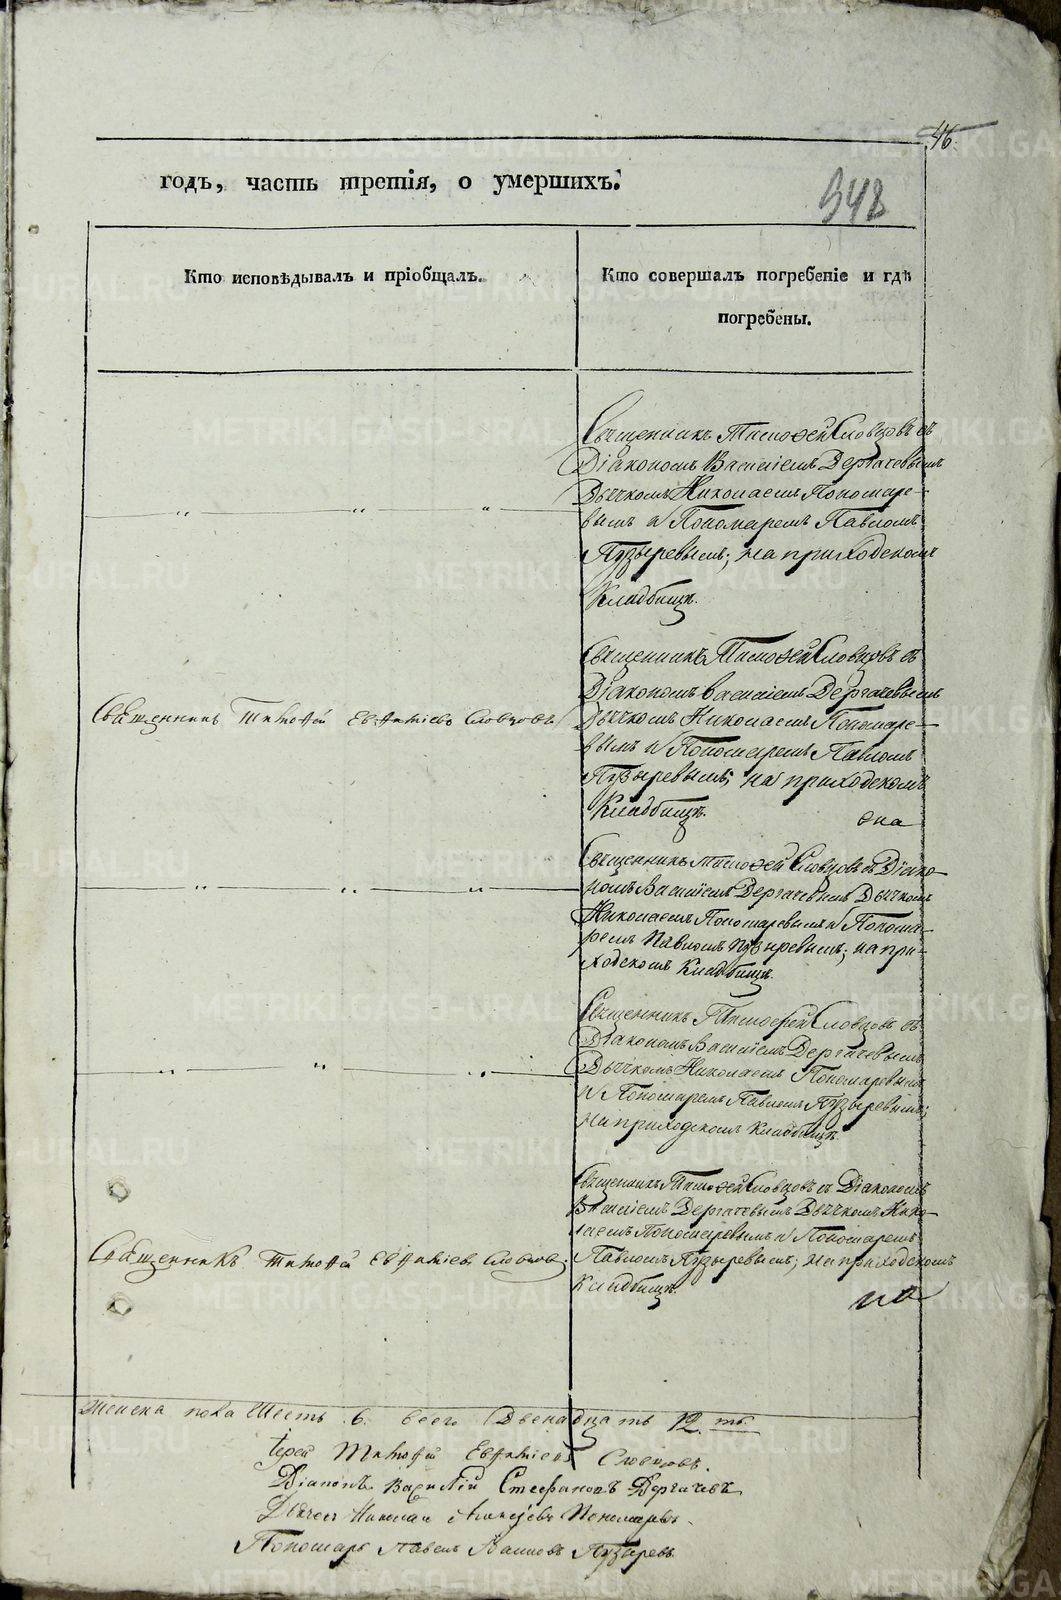 46.
годъ, часть третія, о умершихъ.
348
Кто исповѣдывалъ и пріобщалъ.
Кто совершалъ погребеніе и гдѣ
погребены.
Священникъ Тимофей Словцовъ съ
Діакономъ Василіемъ Дергачевымъ
Дьячкомъ Николаемъ Пономаре-
вымъ и Пономаремъ Павломъ
Пузыревымъ; на приходскомъ
Кладбищѣ.
Священникъ Тимофей Евфиміевъ Словцовъ
Священникъ Тимофей Словцовъ съ
Діакономъ Василіемъ Дергачевымъ
Дьячкомъ Николаемъ Пономаре-
вымъ и Пономаремъ Павломъ
Пузыревымъ; на приходскомъ
Кладбищѣ.
Священникъ Тимофей Словцовъ съ Діако-
номъ Василіемъ Дергачевымъ Дьячкомъ
Николаемъ Пономаревымъ и Понома-
ремъ Павломъ Пузыревымъ; на при-
ходскомъ Кладбищѣ.
Священникъ Тимофей Словцовъ съ
Діакономъ Василіемъ Дергачевымъ
Дьячкомъ Николаемъ Пономаревымъ
и Пономаремъ Павломъ Пузыревымъ;
на приходскомъ Кладбищѣ.
Священникъ Тимофей Евфиміевъ Словцовъ
Священникъ Тимофей Словцовъ съ Діакономъ
Василіемъ Дергачевымъ Дьячкомъ Нико-
лаемъ Пономаревымъ и Пономаремъ
Павломъ Пузыревымъ; на приходскомъ
Кладбищѣ.
Женска пола Шесть 6. всего Двенадцать 12.ть.
Іерей Тимофей Евфиміевъ Словцовъ.
Діаконъ Василій Стефановъ Дергачевъ
Дьячекъ Николай Алексѣевъ Пономаревъ
Пономарь Павелъ Пузыревъ.
METRIKI.GASO-URAL.RU